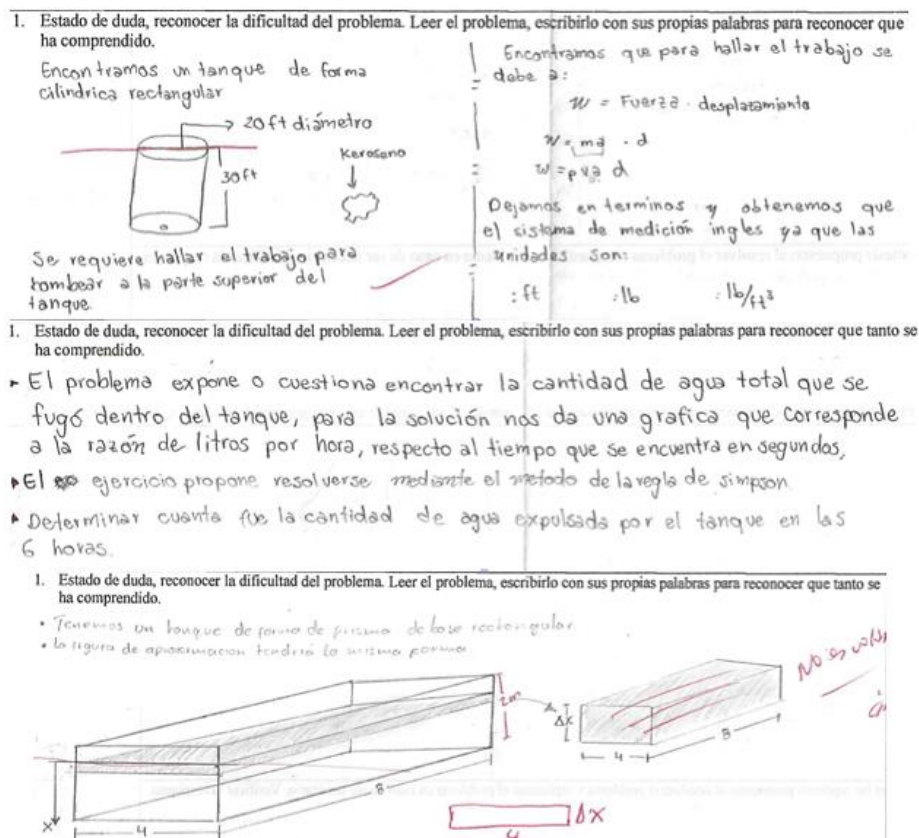 1. Estado de duda, reconocer la dificultad del problema. Leer el problema, escribirlo con sus propias palabras para reconocer que
ha comprendido.
Encontramos un tanque de forma
cilindrica rectangular
20 ft diámetro
30 ft
Keroseno
Se requiere hallar el trabajo para
bombear a la parte superior del
tanque.
Encontramos que para hallar el trabajo se
debe a:
W = Fuerza · desplazamiento
W = ma · d
W = ρva d
Dejamos en terminos y obtenemos que
el sistema de medición ingles ya que las
unidades son:
: ft : lb : lb/ft³
1. Estado de duda, reconocer la dificultad del problema. Leer el problema, escribirlo con sus propias palabras para reconocer que tanto se
ha comprendido.
El problema expone o cuestiona encontrar la cantidad de agua total que se
fugó dentro del tanque, para la solución nos da una grafica que corresponde
a la razón de litros por hora, respecto al tiempo que se encuentra en segundos,
El ejercicio propone resolverse mediante el metodo de la regla de simpson
Determinar cuanta fue la cantidad de agua expulsada por el tanque en las
6 horas.
1. Estado de duda, reconocer la dificultad del problema. Leer el problema, escribirlo con sus propias palabras para reconocer que tanto se
ha comprendido.
• Tenemos un tanque de forma de prisma de base rectangular.
• la figura de aproximacion tendrá la misma forma
2m
8
4
x
Δx
4
8
No es
Δx
4